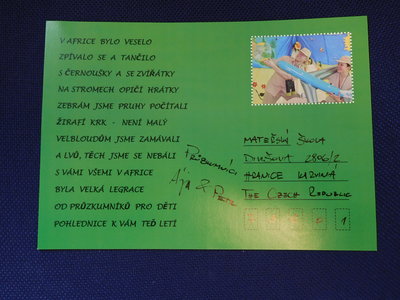 V AFRICE BYLO VESELO
ZPÍVALO SE A TANČILO
S ČERNOUŠKY A SE ZVÍŘÁTKY
NA STROMECH OPIČÍ HRÁTKY
ZEBRÁM JSME PRUHY POČÍTALI
ŽIRAFÍ KRK - NENÍ MALÝ
VELBLOUDŮM JSME ZAMÁVALI
A LVŮ, TĚCH JSME SE NEBÁLI
S VÁMI VŠEMI V AFRICE
BYLA VELKÁ LEGRACE
OD PRŮZKUMNÍKŮ PRO DĚTI
POHLEDNICE K VÁM TEĎ LETÍ
PRŮZKUMNÍCI
& PETR
MATEŘSKÁ ŠKOLA
2806/2
HRANICE KARVINÁ
THE CZECH REPUBLIC
1